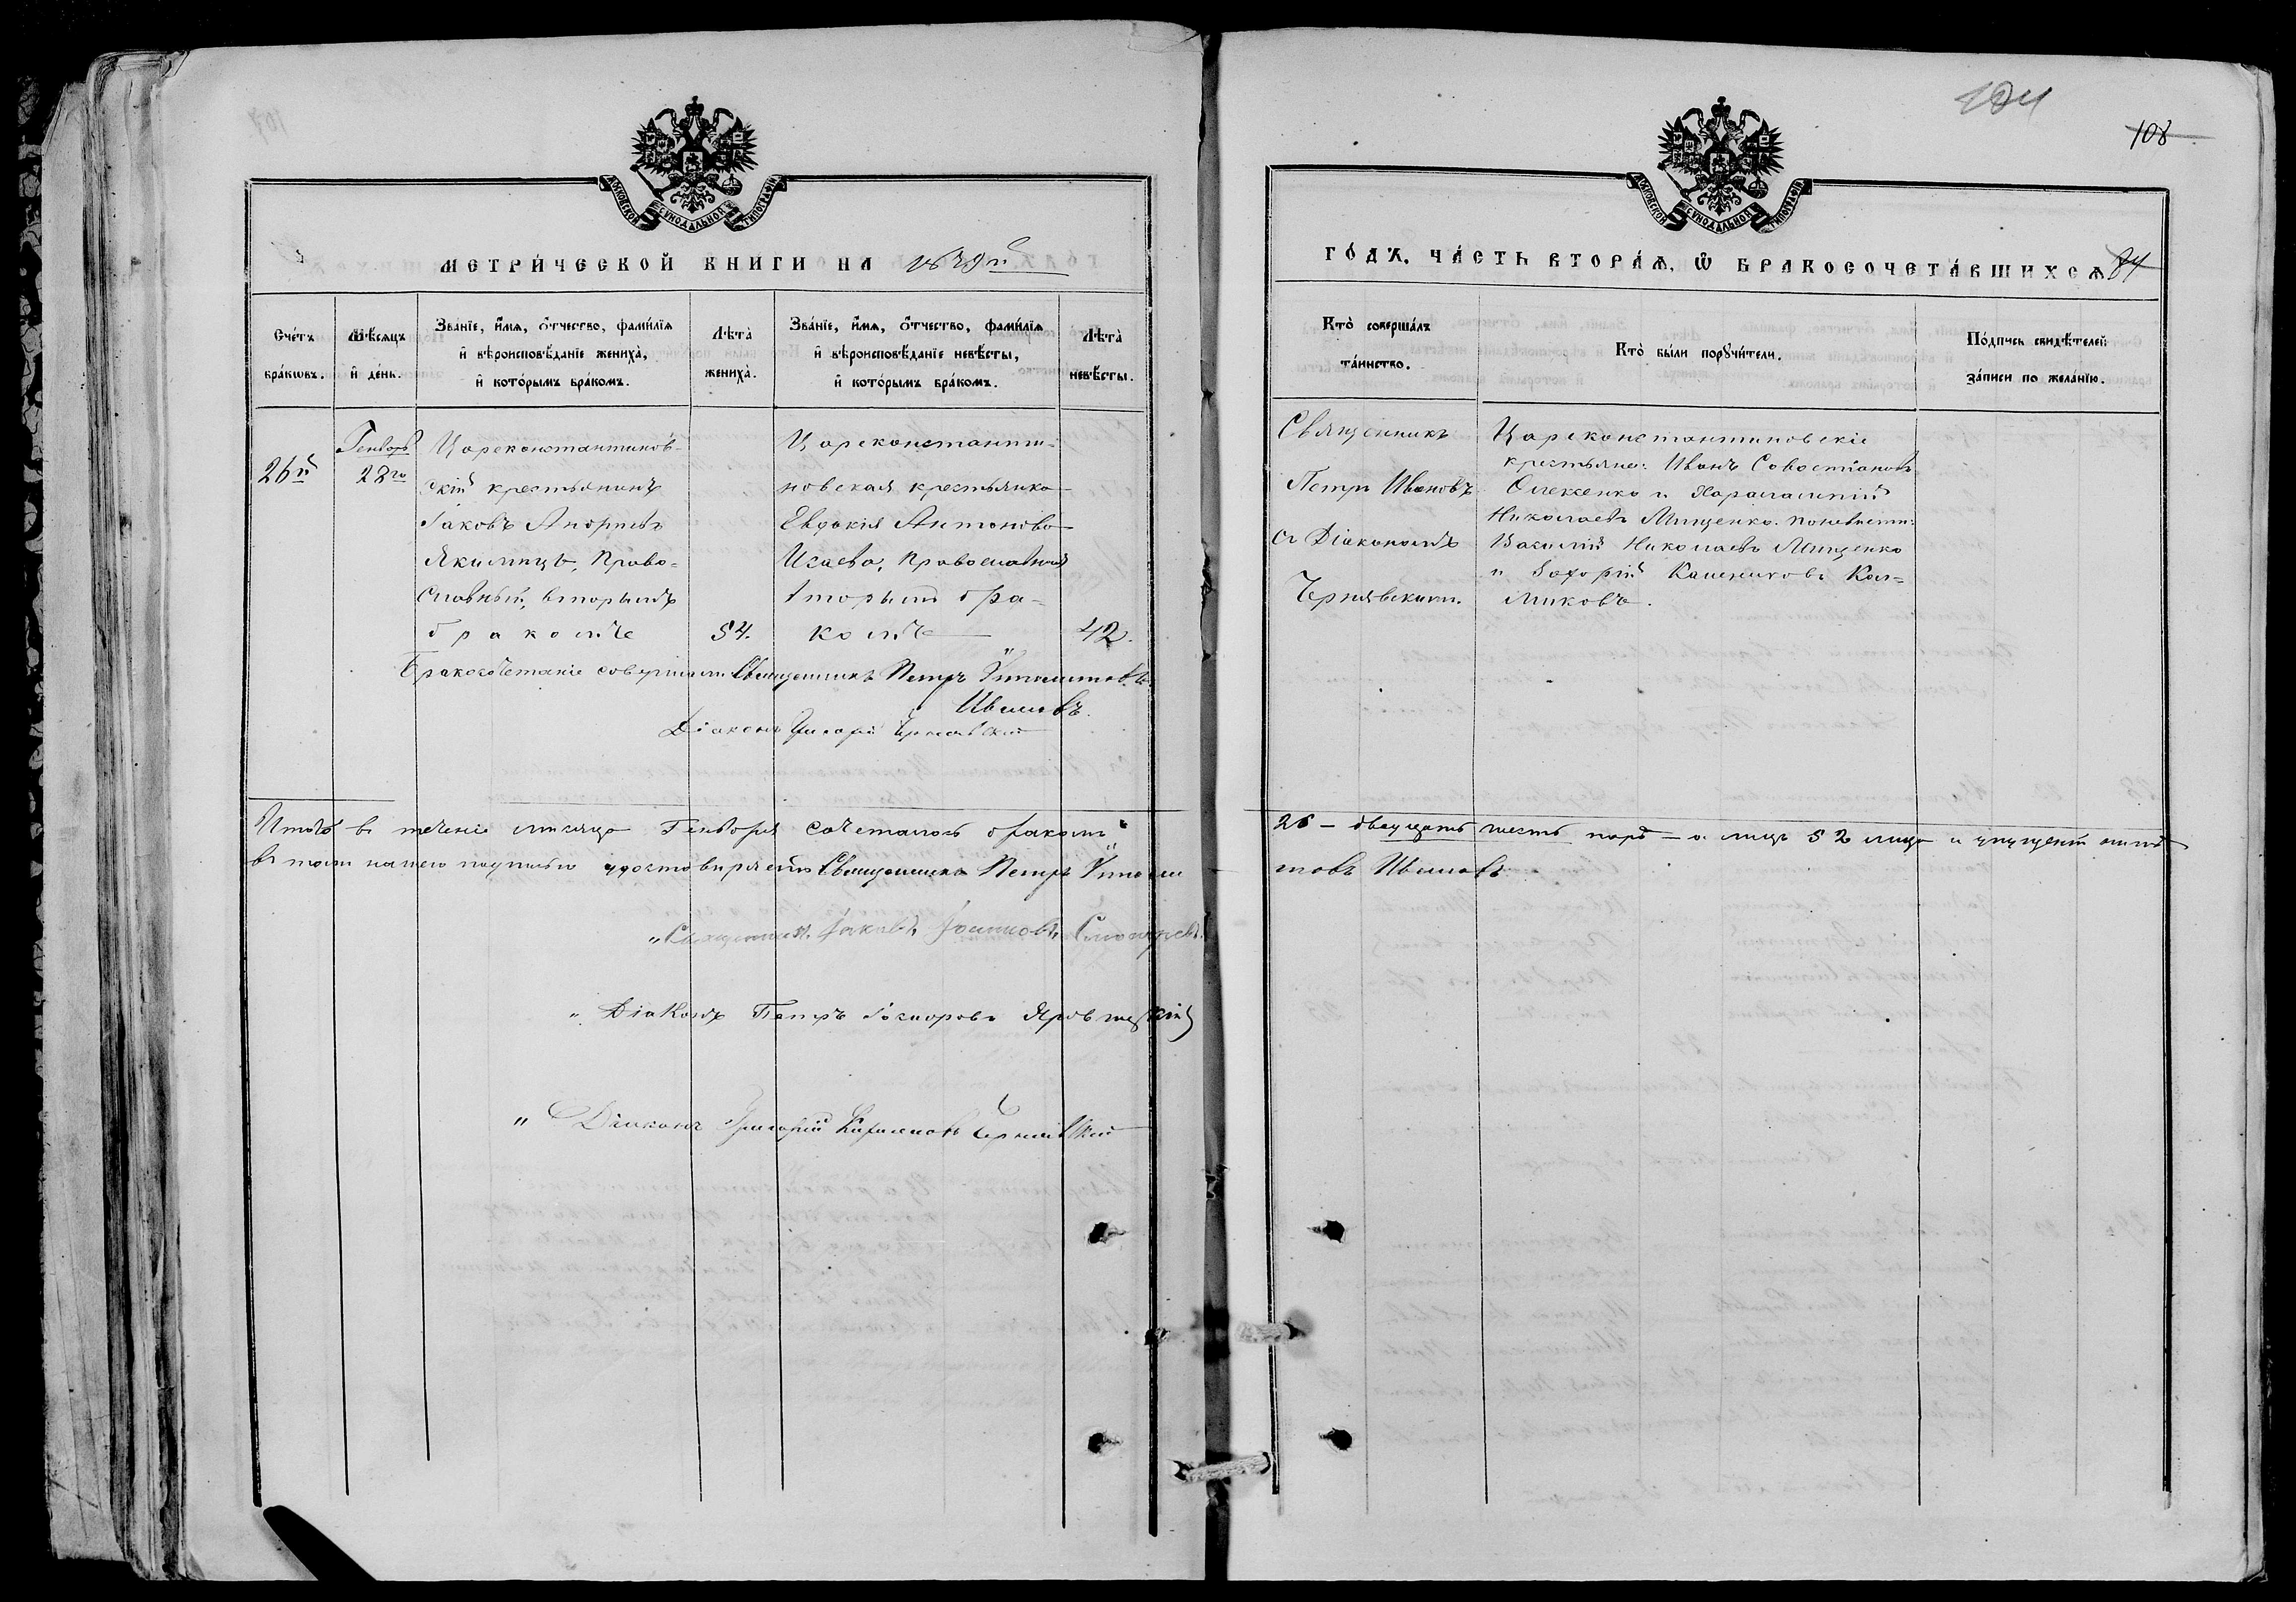 МОСКОВСКОЙ СѴНОДАЛЬНОЙ ТИПОГРАФІИ
МЕТРИ́ЧЕСКОЙ КНИГИ НА 1879й
Сче́тъ бра́кѡвъ.
Мѣ́сѧцъ и҆ де́нь.
Зва́нїе, и҆́мѧ, ѻ҆́тчество, фами́лїѧ
и҆ вѣроисповѣ́данїе жениха̀,
и҆ кото́рымъ бра́комъ.
Лѣта̀ жениха̀.
Зва́нїе, и҆́мѧ, ѻ҆́тчество, фами́лїѧ
и҆ вѣроисповѣ́данїе невѣ́сты,
и҆ кото́рымъ бра́комъ.
Лѣта̀ невѣ́сты.
26й
Генварь
28го
Цареконстантинов-
скій крестьянинъ
Іаковъ Андреевъ
Якимецъ, Право-
славный, вторымъ
бракомъ
54.
Цареконстанти-
новская крестьянка
Евдокія Антонова
Исаева, Православная
вторымъ бра-
комъ
42.
Бракосочетаніе совершали Священникъ Петръ Ипполитовъ
Ивановъ
Діаконъ Григорій Чернявскій
Итого въ теченіе мѣсяца Генваря сочеталось бракомъ
въ томъ нашею подписью удостовѣряемъ Священникъ Петръ Ипполи
Священникъ Іаковъ Іоанновъ
Діаконъ Петръ
Діаконъ Григорій Чернявскій
104
108
МОСКОВСКОЙ СѴНОДАЛЬНОЙ ТИПОГРАФІИ
ГО́ДЪ, ЧА́СТЬ ВТОРА́Ѧ, Ѡ҆ БРАКОСОЧЕТА́ВШИХСѦ 84
Кто̀ соверша́лъ
та́инство.
Кто̀ бы́ли порꙋчи́тели.
По́дпись свидѣ́телей
за́писи по жела́нїю.
Священникъ
Петръ Ивановъ
съ Діакономъ
Чернявскимъ.
Цареконстантиновскіе
крестьяне: Иванъ Савостіановъ
Олексенко и Харалампій
Николаевъ Мищенко. по невѣстѣ:
Василій Николаевъ Мищенко
и Захарій Кал-
мыковъ.
26 – двадцать шесть паръ – а лицъ 52 лица
товъ Ивановъ